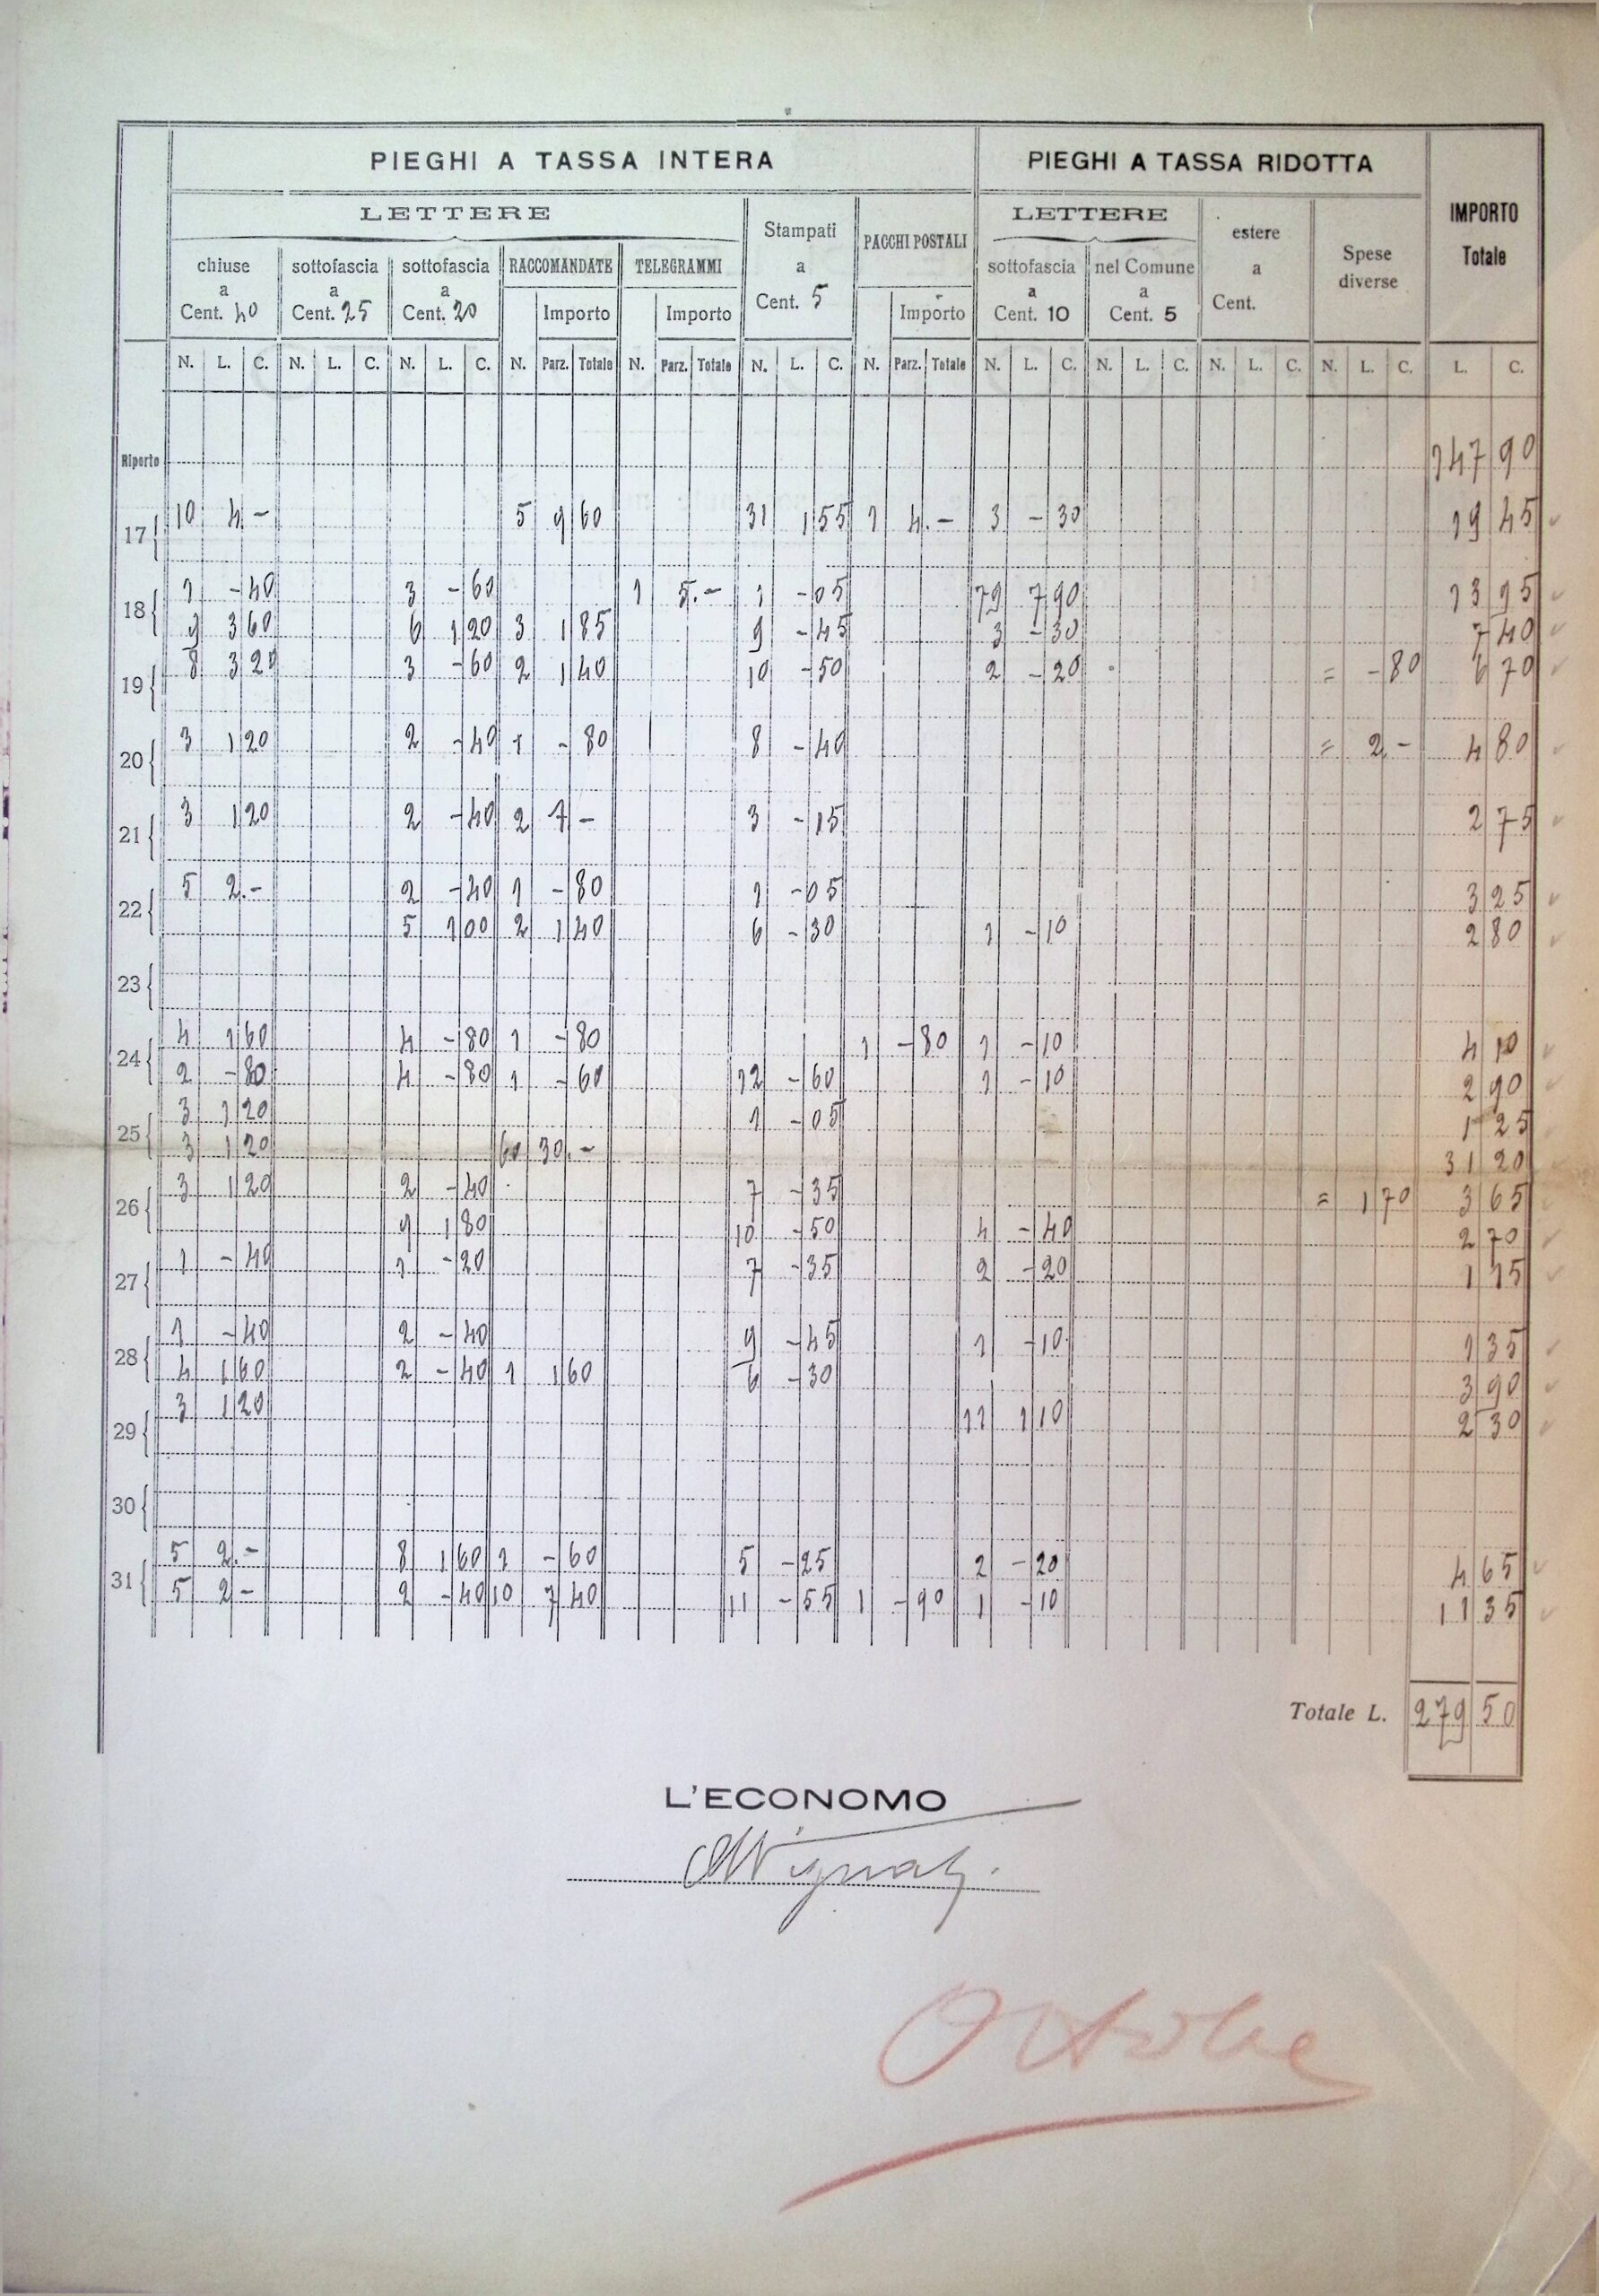 PIEGHI A TASSA INTERA PIEGHI A TASSA RIDOTTA IMPORTO Totale
LETTERE Stampati a Cent. 5 PACCHI POSTALI LETTERE estere a Cent. Spese diverse
chiuse a Cent. 40 sottofascia a Cent. 25 sottofascia a Cent. 20 RACCOMANDATE TELEGRAMMI sottofascia a Cent. 10 nel Comune a Cent. 5
Importo Importo Importo
N. L. C. N. L. C. N. L. C. N. Parz. Totale N. Parz. Totale N. L. C. N. Parz. Totale N. L. C. N. L. C. N. L. C. N. L. C. L. C.
Riporto 147 90
17 10 4 - 5 9 60 31 1 55 1 4.- 3 - 30 19 45
18 1 - 40 3 - 60 1 5.- 1 - 05 79 7 90 13 95
9 3 60 6 1 20 3 1 85 9 - 45 3 - 30 7 40
19 8 3 20 3 - 60 2 1 40 10 - 50 2 - 20 = - 80 6 70
20 3 1 20 2 - 40 1 - 80 8 - 40 = 2 - 4 80
21 3 1 20 2 - 40 2 1 - 3 - 15 2 75
22 5 2.- 2 - 40 1 - 80 1 - 05 3 25
5 1 00 2 1 40 6 - 30 1 - 10 2 80
23
24 4 1 60 4 - 80 1 - 80 1 - 80 1 - 10 4 10
2 - 80 4 - 80 1 - 60 12 - 60 1 - 10 2 90
25 3 1 20 1 - 05 1 25
3 1 20 60 30.- 31 20
26 3 1 20 2 - 40 7 - 35 = 1 70 3 65
9 1 80 10 - 50 4 - 40 2 70
27 1 - 40 1 - 20 7 - 35 2 - 20 1 15
28 1 - 40 2 - 40 9 - 45 1 - 10 1 35
4 1 60 2 - 40 1 1 60 6 - 30 3 90
29 3 1 20 11 1 10 2 30
30
31 5 2.- 8 1 60 1 - 60 5 - 25 2 - 20 4 65
5 2 - 2 - 40 10 7 40 11 - 55 1 - 90 1 - 10 11 35
Totale L. 279 50
L'ECONOMO
Ottobre